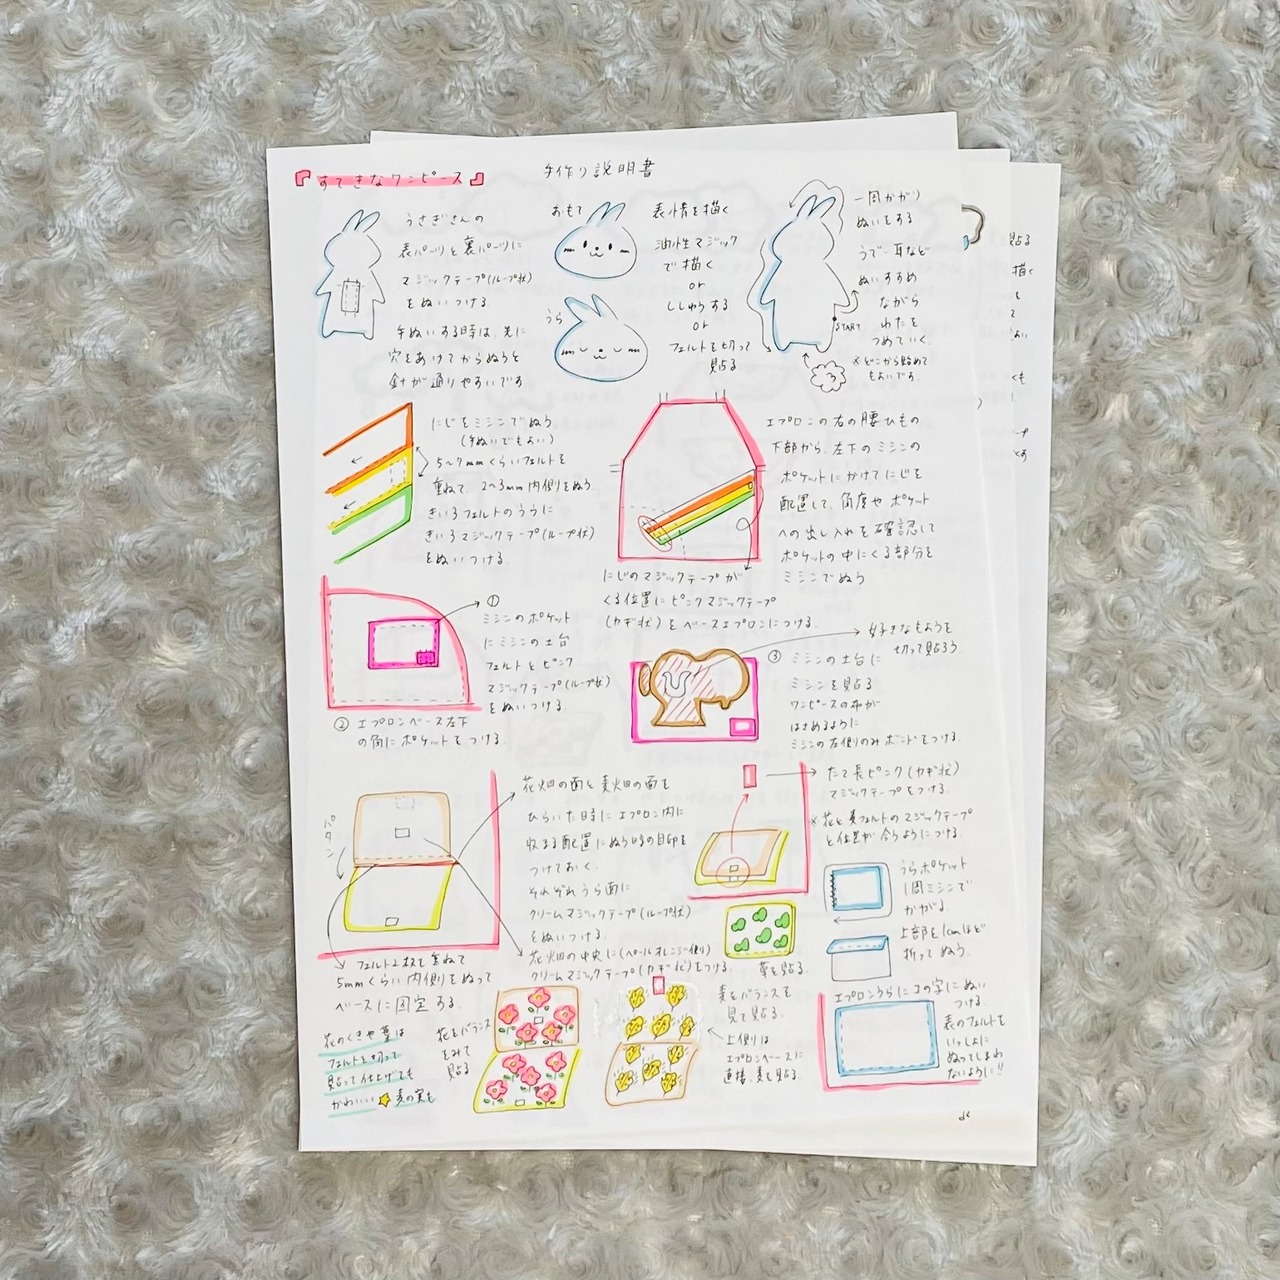 『すてきなワンピース』
手作り説明書
うさぎさんの
表パーツと裏パーツに
マジックテープ(ループ状)
をぬいつける
手ぬいする時は、先に
穴をあけてからぬうと
針が通りやすいです
おもて
うら
表情を描く
油性マジック
で描く
or
ししゅうする
or
フェルトを切って
貼る
一周かがり
ぬいをする
うで・耳など
ぬいすすめ
ながら
わたを
つめていく。
START
※どこから始めて
もよいです。
にじをミシンでぬう
(手ぬいでもよい)
5~7mmくらいフェルトを
重ねて、2~3mm内側をぬう
きいろフェルトのうらに
きいろマジックテープ(ループ状)
をぬいつける。
エプロンの右の腰ひもの
下部から、左下のミシンの
ポケットにかけてにじを
配置して、角度やポケット
への出し入れを確認して
ポケットの中にくる部分を
ミシンでぬう
にじのマジックテープが
くる位置にピンクマジックテープ
(カギ状)をベースエプロンにつける。
①
ミシンのポケット
にミシンの土台
フェルトとピンク
マジックテープ(ループ状)
をぬいつける。
② エプロンベース左下
の角にポケットをつける。
好きなもようを
切って貼ろう
③ ミシンの土台に
ミシンを貼る
ワンピースの布が
はさめるように
ミシンの左側のみボンドをつける。
パタン
花畑の面と麦畑の面を
ひらいた時にエプロン内に
収まる配置にぬう時の目印を
つけておく。
それぞれうら面に
クリームマジックテープ(ループ状)
をぬいつける。
花畑の中央に(ペールオレンジ側)
クリームマジックテープ(カギ状)をつける。
フェルト2枚を重ねて
5mmくらい内側をぬって
ベースに固定する。
たて長ピンク(カギ状)
マジックテープをつける。
※花と麦フェルトのマジックテープ
と位置が合うようにつける。
葉を貼る
うらポケット
1周ミシンで
かがる。
上部を1cmほど
折ってぬう。
エプロンうらにコの字にぬい
つける。
表のフェルトを
いっしょに
ぬってしまわ
ないように!!
花のくきや葉は
フェルトを切って
貼って仕上げても
かわいい
麦の実も
花をバランス
をみて
貼る
麦をバランスを
見て貼る。
上側は
エプロンベースに
直接、麦を貼る。
貼る
描く